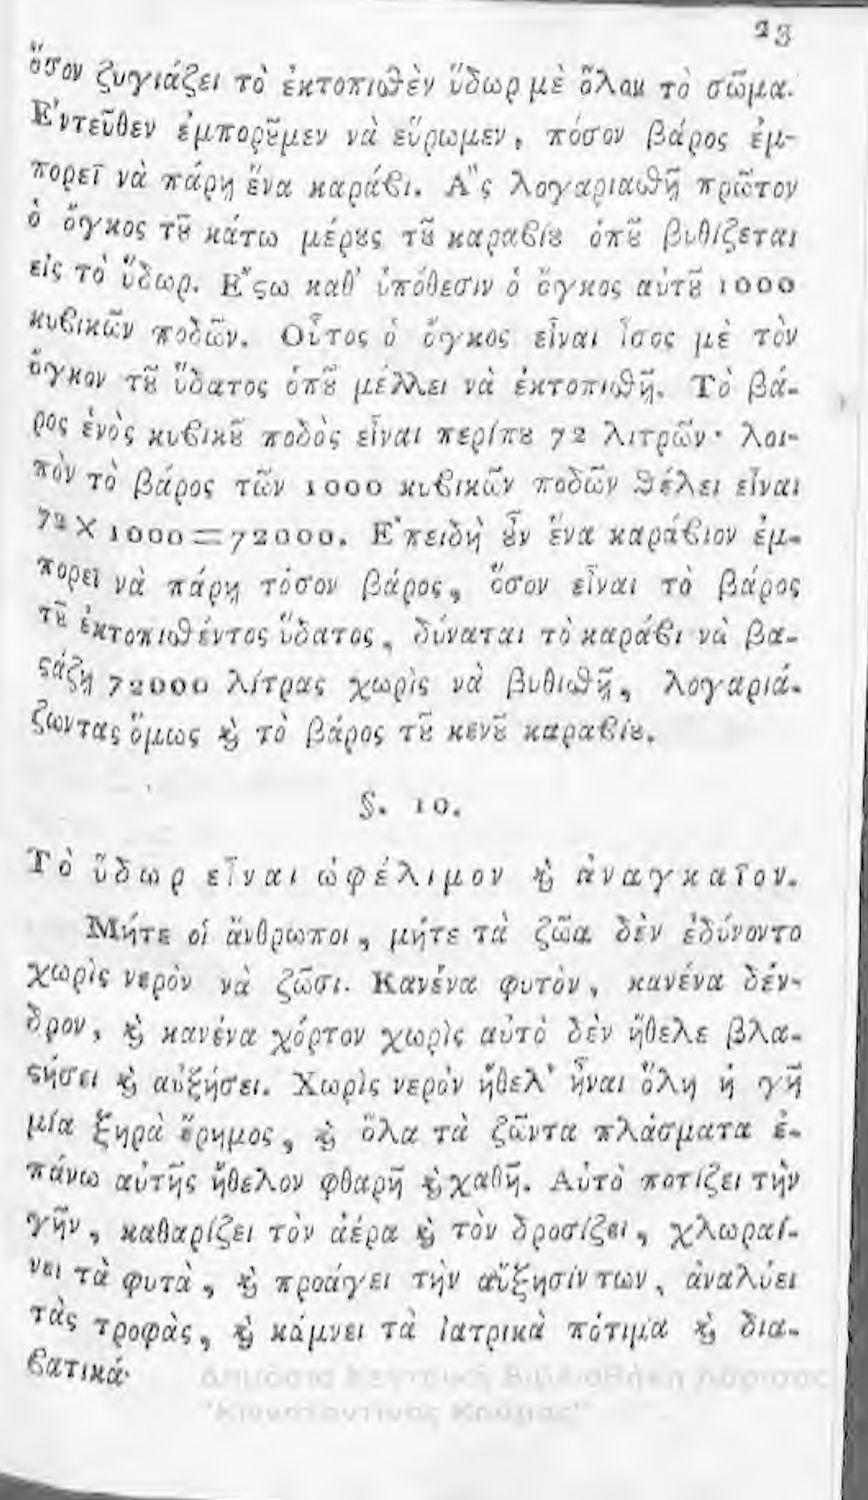 23
ὅσον ζυγιάζει τὸ ἐκτοπισθὲν ὕδωρ μὲ ὅλον τὸ σῶμα.
Ἐντεῦθεν ἐμποροῦμεν νὰ εὕρωμεν, πόσον βάρος ἐμ-
πορεῖ νὰ πάρῃ ἕνα καράβι. Ἂς λογαριασθῇ πρῶτον
ὁ ὄγκος τȣ͂ κάτω μέρȣς τȣ͂ καραβίȣ ὁπȣ͂ βυθίζεται
εἰς τὸ ὕδωρ. Ἔϛω καθ' ὑπόθεσιν ὁ ὄγκος αὐτȣ͂ 1000
κυβικῶν ποδῶν. Οὗτος ὁ ὄγκος εἶναι ἴσος μὲ τὸν
ὄγκον τȣ͂ ὕδατος ὁπȣ͂ μέλλει νὰ ἐκτοπισθῇ. Τὸ βά-
ρος ἑνὸς κυβικȣ͂ ποδὸς εἶναι περίπȣ 72 λιτρῶν· λοι-
πὸν τὸ βάρος τῶν 1000 κυβικῶν ποδῶν θέλει εἶναι
72 × 1000 = 72000. Ἐπειδὴ ȣ̓͂ν ἕνα καράβιον ἐμ-
πορεῖ νὰ πάρῃ τόσον βάρος, ὅσον εἶναι τὸ βάρος
τȣ͂ ἐκτοπισθέντος ὕδατος, δύναται τὸ καράβι νὰ βα-
ϛάζῃ 72000 λίτρας χωρὶς νὰ βυθισθῇ, λογαριά-
ζωντας ὅμως ϗ̀ τὸ βάρος τȣ͂ κενȣ͂ καραβίȣ.
§. 10.
Τὸ ὕδωρ εἶναι ὠφέλιμον ϗ̀ ἀναγκαῖον.
Μήτε οἱ ἄνθρωποι, μήτε τὰ ζῶα δὲν ἐδύνοντο
χωρὶς νερὸν νὰ ζῶσι. Κανένα φυτὸν, κανένα δέν-
δρον, ϗ̀ κανένα χόρτον χωρὶς αὐτὸ δὲν ἤθελε βλα-
ϛήσει ϗ̀ αὐξήσει. Χωρὶς νερὸν ἤθελ' ἦναι ὅλη ἡ γῆ
μία ξηρὰ ἔρημος, ϗ̀ ὅλα τὰ ζῶντα πλάσματα ἐ-
πάνω αὐτῆς ἤθελον φθαρῆ ϗ̀ χαθῆ. Αὐτὸ ποτίζει τὴν
γῆν, καθαρίζει τὸν ἀέρα ϗ̀ τὸν δροσίζει, χλωραί-
νει τὰ φυτὰ, ϗ̀ προάγει τὴν αὔξησίν των, ἀναλύει
τὰς τροφὰς, ϗ̀ κάμνει τὰ ἰατρικὰ πότιμα ϗ̀ δια-
βατικά·
Δημόσια Κεντρική Βιβλιοθήκη Λάρισας
"Κωνσταντίνος Κούμας"